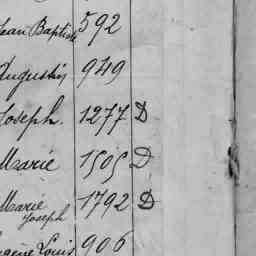 Jean Baptiste 592
Augustin 949
Joseph. 1277 D
Marie 1505 D
Marie Joseph 1792 D
Eugène Louis 906